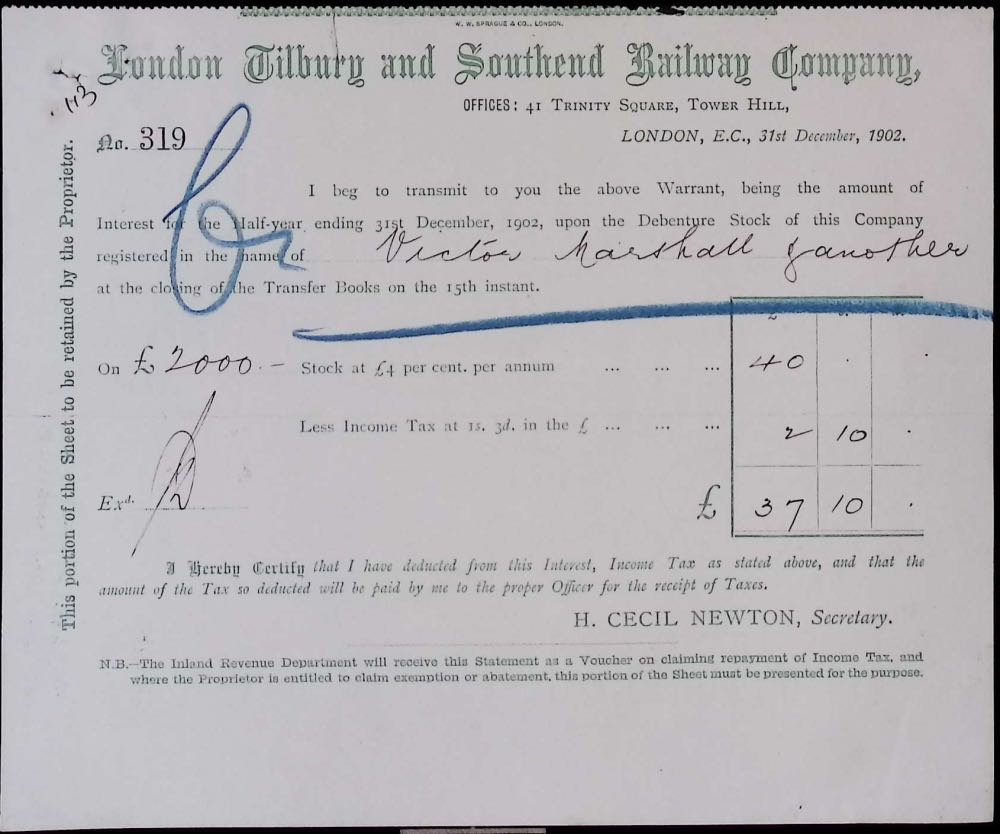 W. W. SPRAGUE & CO., LONDON.
London Tilbury and Southend Railway Company,
OFFICES: 41 TRINITY SQUARE, TOWER HILL,
113
No. 319
LONDON, E.C., 31st December, 1902.
I beg to transmit to you the above Warrant, being the amount of
Interest for the Half-year ending 31st December, 1902, upon the Debenture Stock of this Company
registered in the name of Victor Marshall & another
at the closing of the Transfer Books on the 15th instant.
On £ 2000 . - Stock at £4 per cent. per annum ... ... ... 40 . .
Less Income Tax at 1s. 3d. in the £ ... ... ... 2 10 .
Exd. £ 37 10 .
I Hereby Certify that I have deducted from this Interest, Income Tax as stated above, and that the
amount of the Tax so deducted will be paid by me to the proper Officer for the receipt of Taxes.
H. CECIL NEWTON, Secretary.
N.B.—The Inland Revenue Department will receive this Statement as a Voucher on claiming repayment of Income Tax, and
where the Proprietor is entitled to claim exemption or abatement, this portion of the Sheet must be presented for the purpose.
This portion of the Sheet to be retained by the Proprietor.